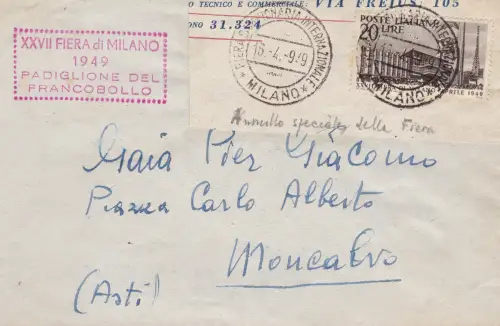 TECNICO E COMMERCIALE: VIA FREJUS, 105
ONO 31.324
XXVII FIERA di MILANO
1949
PADIGLIONE DEL
FRANCOBOLLO
INTERNAZIONALE
16-4.-949
* MILANO *
POSTE ITALIANE
20
LIRE
MILANO
APRILE 1949
Annullo speciale della Fiera
Gaia Pier Giacomo
Piazza Carlo Alberto
Moncalvo
(Asti)